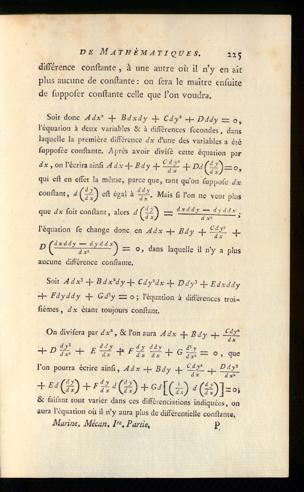 DE MATHÉMATIQUES. 225
différence conſtante, à une autre où il n'y en ait
plus aucune de conſtante: on ſera le maître enſuite
de ſuppoſer conſtante celle que l'on voudra.
Soit donc Adx² + Bdxdy + Cdy² + Dddy = 0,
l'équation à deux variables & à différences ſecondes, dans
laquelle la première différence dx d'une des variables a été
ſuppoſée conſtante. Après avoir diviſé cette équation par
dx, on l'écrira ainſi Adx + Bdy + Cdy²/dx + Dd(dy/dx) = 0,
qui eſt en effet la même, parce que, tant qu'on ſuppoſe dx
conſtant, d(dy/dx) eſt égal à ddy/dx. Mais ſi l'on ne veut plus
que dx ſoit conſtant, alors d(dy/dx) = (dxddy — dyddx)/dx²;
l'équation ſe change donc en Adx + Bdy + Cdy²/dx +
D((dxddy — dyddx)/dx²) = 0, dans laquelle il n'y a plus
aucune différence conſtante.
Soit Adx³ + Bdx²dy + Cdy²dx + Ddy³ + Edxddy
+ Fdyddy + Gd³y = 0; l'équation à différences troi-
ſièmes, dx étant toujours conſtant.
On diviſera par dx², & l'on aura Adx + Bdy + Cdy²/dx
+ D dy³/dx² + E ddy/dx + F dy/dx ddy/dx + G d³y/dx² = 0, que
l'on pourra écrire ainſi, Adx + Bdy + Cdy²/dx + Ddy³/dx²
+ Ed(dy/dx) + F dy/dx d(dy/dx) + Gd[(1/dx) d(dy/dx)] = 0;
& faiſant tout varier dans ces différenciations indiquées, on
aura l'équation où il n'y aura plus de différentielle conſtante.
Marine. Mécan. Iʳᵉ. Partie. P